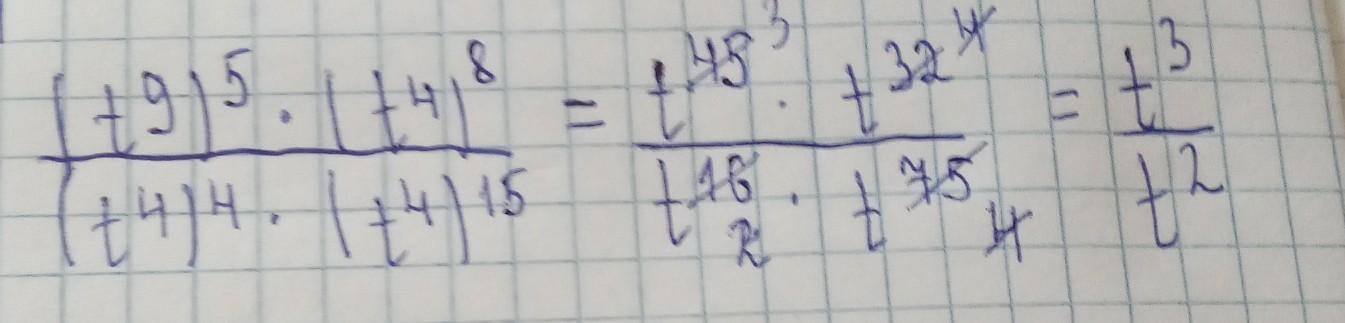 (t^9)^5 · (t^4)^8 / (t^4)^4 · (t^4)^15 = t^45 3 · t^32 4 / t^16 2 · t^75 4 = t^3 / t^2